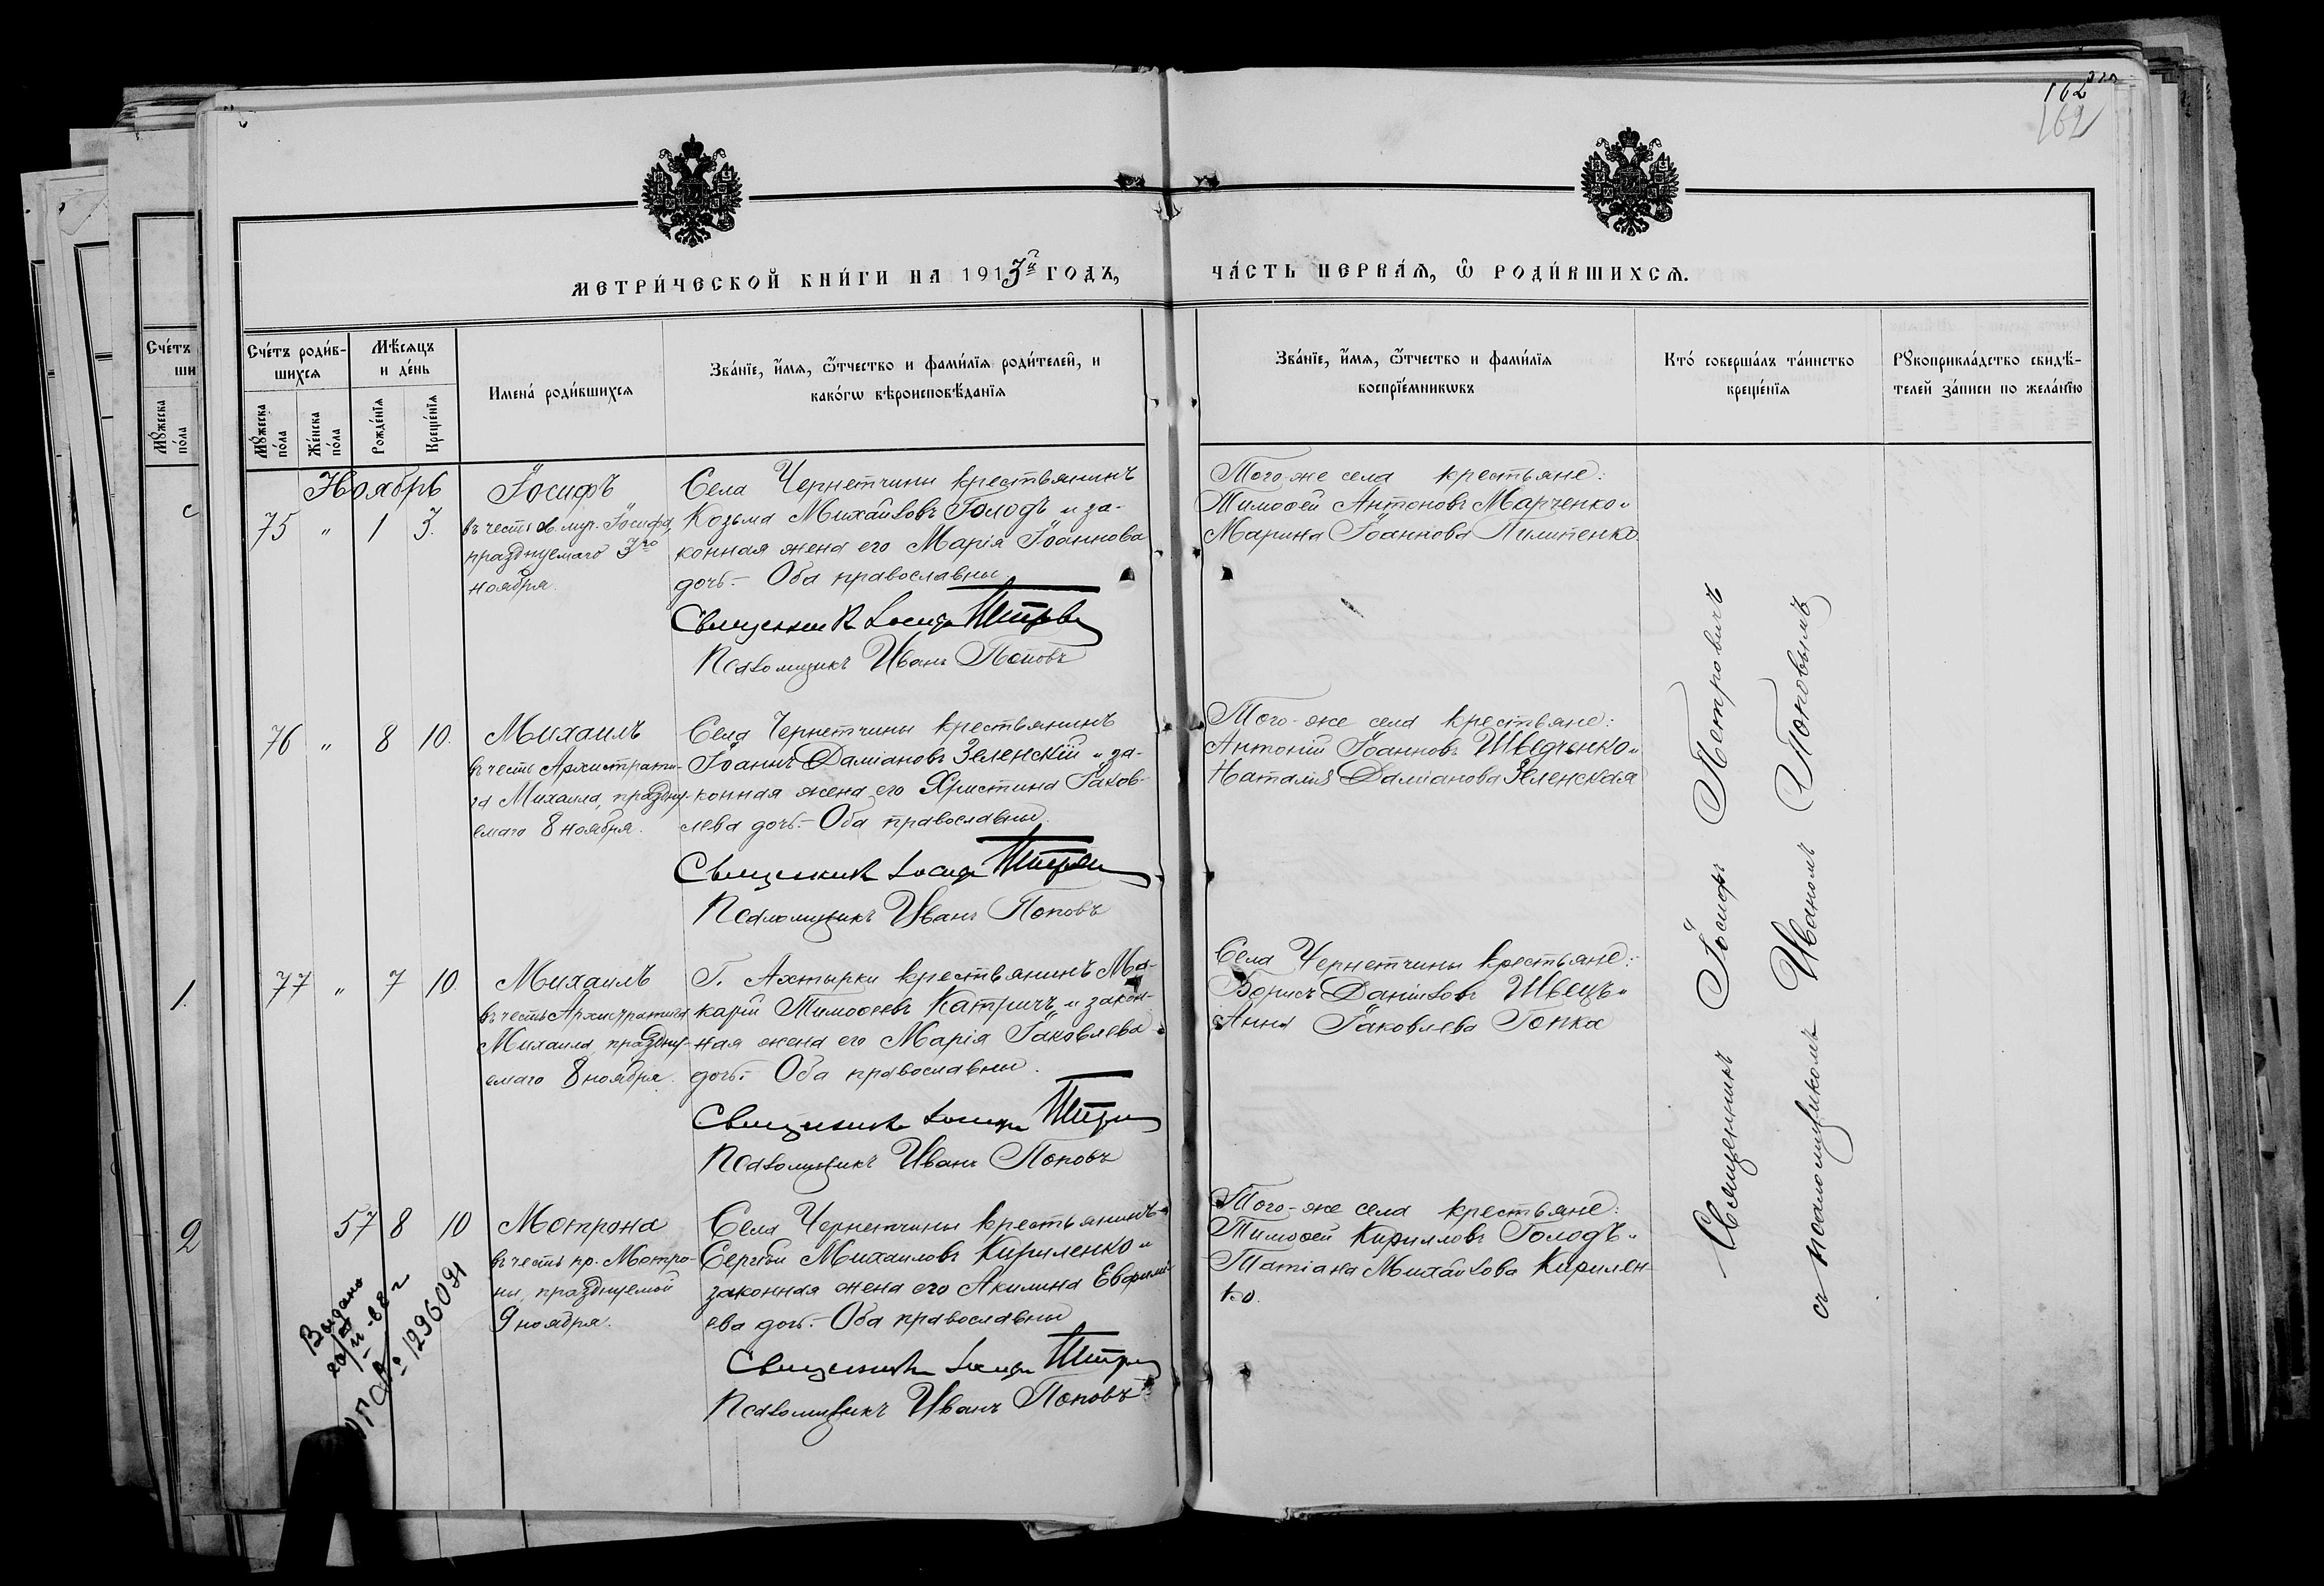 162
162
МЕТРИ́ЧЕСКОЙ КНИ́ГИ НА 1913й ГОДЪ,
ЧА́СТЬ ПЕРВА́Я, Ѡ РОДИ́ВШИХСЯ.
Сче́тъ
ши
Мꙋ́жеска по́ла
с
1.
2
Сче́тъ роди́в-
шихся
Мѣ́сяцъ
и де́нь
Мꙋ́жеска по́ла
Же́нска по́ла
Рожде́нїя
Креще́нїя
Имена́ роди́вшихся
Зва́нїе, и́мя, ѻ́тчество и фами́лїя роди́телей, и
како́гѡ вѣроисповѣ́данїя
Зва́нїе, и́мя, ѻ́тчество и фами́лїя
воспрїе́мникѡвъ
Кто́ соверша́лъ та́инство
креще́нїя
Рꙋкоприкла́дство свидѣ́-
телей за́писи по жела́нїю
Ноябрь
75 " 1 3.
Іосифъ
въ честь св. муч. Іосифа,
празднуемаго 3го
ноября.
Села Чернетчины крестьянинъ
Козьма Михайловъ Голодъ и за-
конная жена его Марія Іоаннова
дочь.- Оба православны
Священникъ Іосифъ Петровичъ
Псаломщикъ Иванъ Поповъ
Того-же села крестьяне:
Тимофей Антоновъ Марченко и
Марина Іоаннова Пилипенко
76 " 8 10.
Михаилъ
въ честь Архистрати-
га Михаила, праздну-
емаго 8 ноября.
Села Чернетчины крестьянинъ
Іоаннъ Даміановъ Зеленскій и за-
конная жена его Христина Іаков-
лева дочь.- Оба православны.
Священникъ Іосифъ Петровичъ
Псаломщикъ Иванъ Поповъ
Того-же села крестьяне:
Антоній Іоанновъ Шведченко и
Наталія Даміанова Зеленская
77 " 7 10.
Михаилъ
въ честь Архистратига
Михаила, праздну-
емаго 8 ноября.
Г. Ахтырки крестьянинъ Ма-
карій Тимофеевъ Катричъ и закон-
ная жена его Марія Іаковлева
дочь.- Оба православны.
Священникъ Іосифъ Петровичъ
Псаломщикъ Иванъ Поповъ
Села Чернетчины крестьяне:
Борисъ Даніиловъ Швецъ и
Анна Іаковлева Гопка
57 8 10
Мотрона
въ честь пр. Мотро-
ны, празднуемой
9 ноября.
Села Чернетчины крестьянинъ
Сергѣй Михаиловъ Кириленко и
законная жена его Акилина Евфими-
ева дочь.- Оба православны
Священникъ Іосифъ Петровичъ
Псаломщикъ Иванъ Поповъ
Того-же села крестьяне:
Тимофей Кирилловъ Голодъ и
Татіана Михайлова Кирилен-
ко.
Выдано
1296091
Священникъ Іосифъ Петровичъ
съ псаломщикомъ Иваномъ Поповымъ